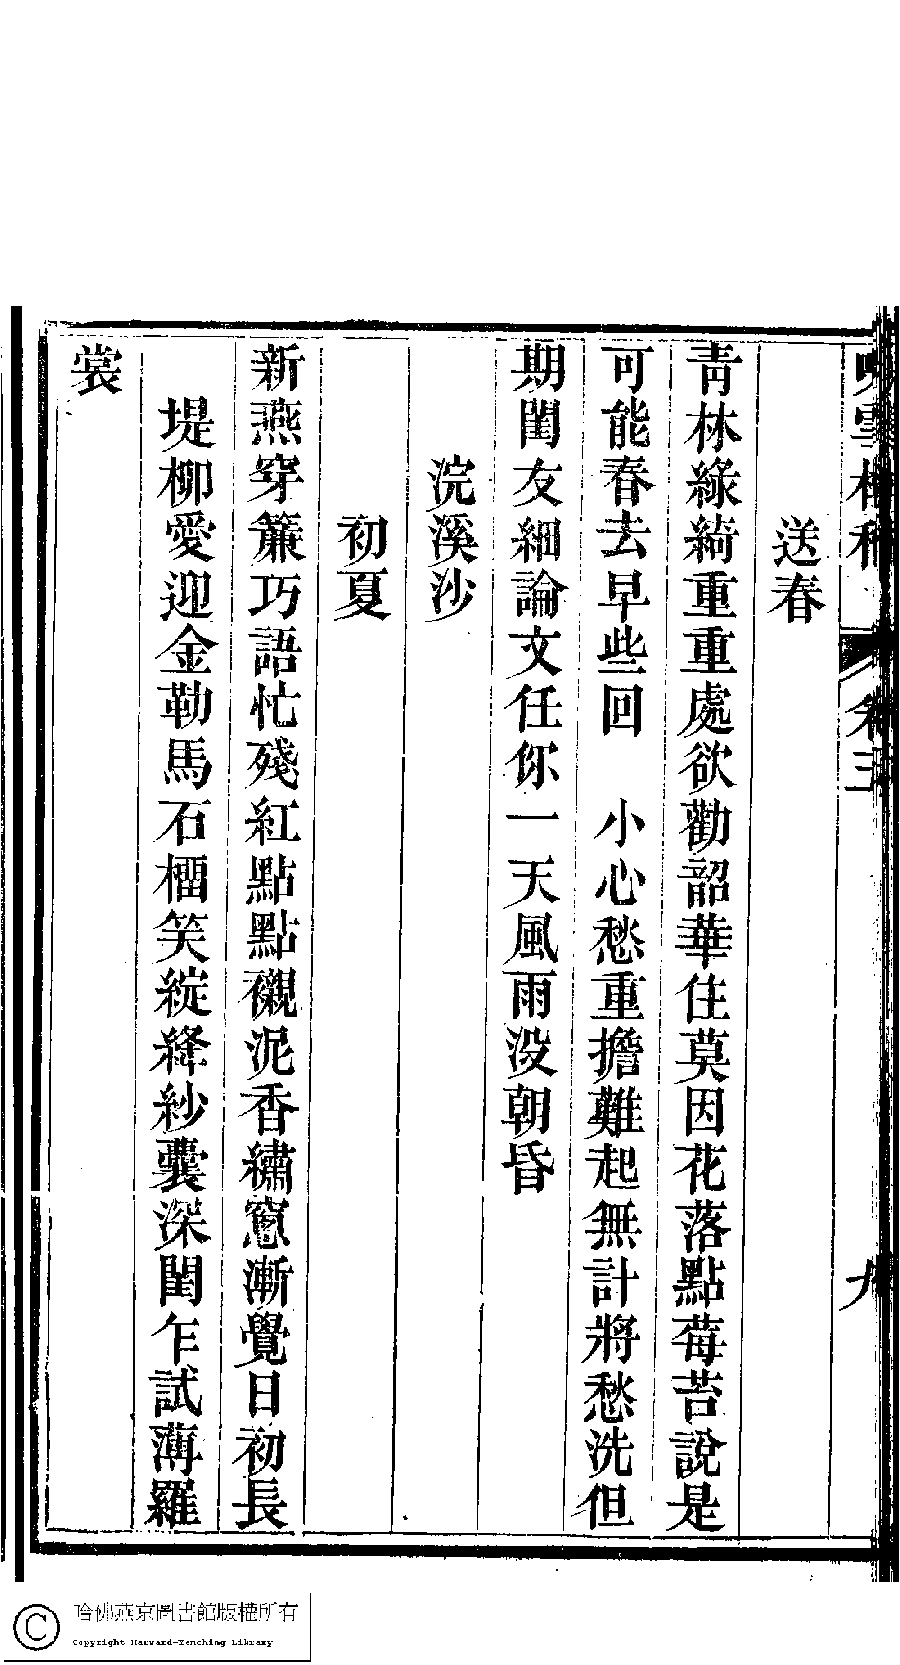 卷三
九
送春
靑林綠綺重重處欲勸韶華住莫因花落點莓苔說是
可能春去早些回　小心愁重擔難起無計將愁洗但
期閨友細論文任你一天風雨没朝昏
浣溪沙
初夏
新燕穿簾巧語忙殘紅點點襯泥香繡窻漸覺日初長
堤柳愛迎金勒馬石橊笑綻絳紗囊深閨乍試薄羅
裳
哈佛燕京圖書館版權所有
Copyright Harvard-Yenching Library